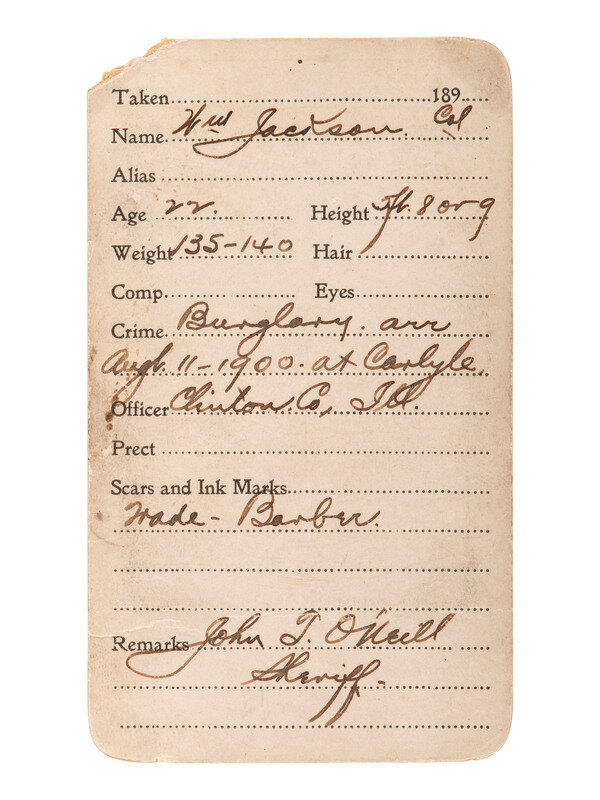 Taken 189
Name Wm Jackson. Col
Alias
Age 22. Height 5ft. 8 or 9
Weight 135-140 Hair
Comp. Eyes
Crime Burglary. arr
Augt. 11-1900. at Carlyle.
Officer Clinton. Co, Ill.
Prect
Scars and Ink Marks
Trade - Barber.
Remarks John T. O'Neill
Sheriff.